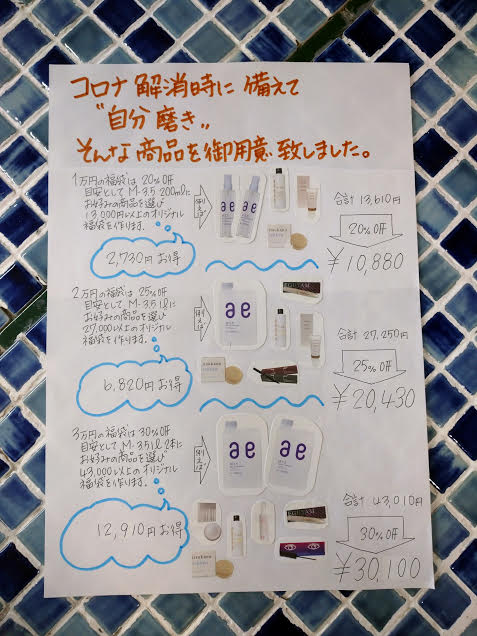 コロナ解消時に備えて
"自分磨き"
そんな商品を御用意致しました。
1万円の福袋は20%Off
目安としてM-3.5 200mlに
お好みの商品を選び
13,000円以上のオリジナル
福袋を作ります。
2,730円お得
例えば
ae
ae
合計 13,610円
20%Off
¥10,880
2万円の福袋は25%Off
目安としてM-3.5 1lに
お好みの商品を選び
27,000以上のオリジナル
福袋を作ります。
6,820円お得
例えば
ae
合計 27,250円
25%Off
¥20,430
3万円の福袋は30%Off
目安としてM-3.5 1l 2本に
お好みの商品を選び
43,000以上のオリジナル
福袋を作ります。
12,910円お得
例えば
ae
ae
合計 43,010円
30%Off
¥30,100